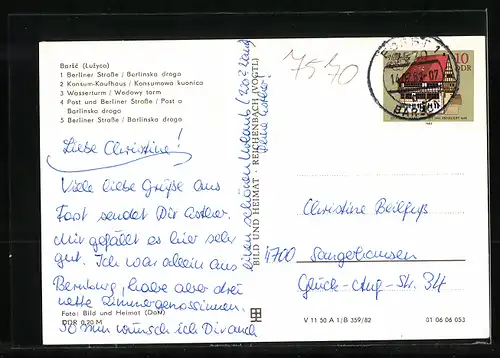 Baršć (Łužyca)
1 Berliner Straße / Berlinska droga
2 Konsum-Kaufhaus / Konsumowa kupnica
3 Wasserturm / Wodowy torm
4 Post und Berliner Straße / Post a
Barlinska droga
5 Berliner Straße / Barlinska droga
Liebe Christine!
Viele liebe Grüße aus
Forst sendet Dir
Mir gefällt es hier sehr
gut. Ich war allein aus
Bernburg, habe aber drei
nette Zimmergenossinnen.
So nun wünsch ich Dir auch
einen schönen Urlaub
Foto: Bild und Heimat
DDR 0,20 M
BILD UND HEIMAT · REICHENBACH (VOGTL)
7570
10
DDR
Christine Beilfuß
4700 Sangerhausen
Glück-Auf-Str. 34
V 11 50 A 1/B 359/82
01 06 06 053